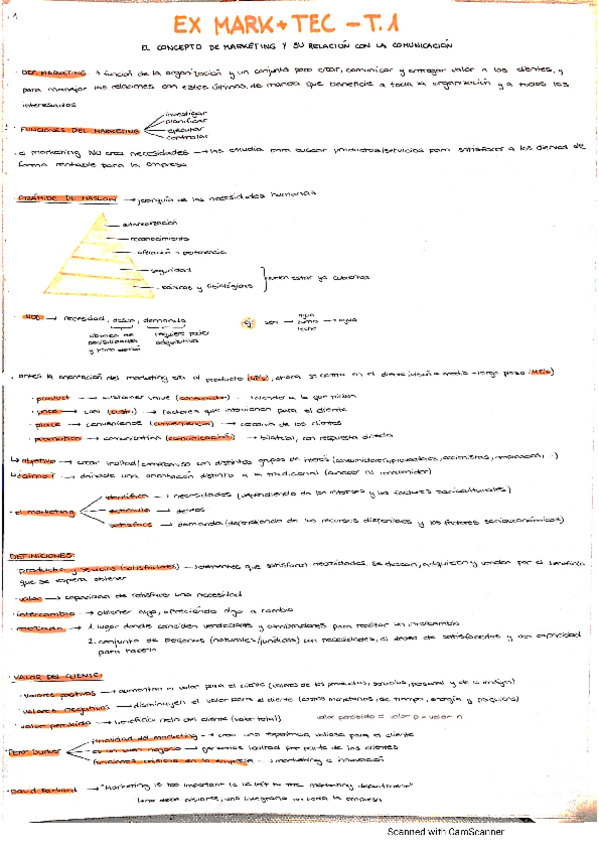 EX MARK + TEC - T.1
EL CONCEPTO DE MARKETING Y SU RELACIÓN CON LA COMUNICACIÓN
DEF. MARKETING → función de la organización y un conjunto para crear, comunicar y entregar valor a los clientes, y
para manejar las relaciones con estos últimos, de manera que beneficie a toda la organización y a todos los
interesados
investigar
planificar
FUNCIONES DEL MARKETING
ejecutar
controlar
marketing NO crea necesidades → las estudia para buscar productos/servicios para satisfacer a los de
forma rentable para la empresa
PIRÁMIDE DE MASLOW → jerarquía de las necesidades humanas
autorrealización
reconocimiento
afiliación pertenencia
seguridad
básicas y fisiológicas
deben estar ya cubiertas
NDD → necesidad, deseo, demanda
ej: sed → agua zumo leche → agua
requiere poder
adquisitivo
antes la orientación del marketing era al producto (4P's), ahora se centra en el cliente medio-largo plazo (4C's)
product → customer value (consumidor)
price → cost (costo) → factores que intervienen para el cliente
place → convenience (conveniencia) → de los clientes
promotion → communication (comunicación) → bilateral, con respuesta directa
objetivo → crear lealtad/compromiso con distintos grupos de interés (consumidores, proveedores, accionistas,
→ dándole una orientación distinta a la tradicional (conocer al consumidor)
identifica → necesidades (dependiendo de los intereses y los factores socioculturales)
el marketing
estimula → deseos
satisface → demanda (dependiendo de los recursos disponibles y los factores socioeconómicos)
DEFINICIONES:
producto y servicio (satisfactores) → elementos que satisfacen necesidades. Se desean, adquieren y venden por el beneficio
que se espera obtener
valor → capacidad de satisfacer una necesidad
intercambio → obtener algo, ofreciendo algo a cambio
mercado → 1. lugar donde coinciden vendedores y compradores para realizar un intercambio
2. conjunto de personas (naturales/jurídicas) con necesidades, el deseo de satisfacerlas y con capacidad
para hacerlo
VALOR DEL CLIENTE:
valores positivos → aumentan el valor para el cliente (valores de los productos, servicios, personal y de la imagen)
valores negativos → disminuyen el valor para el cliente (costos monetarios, de tiempo, energía y psíquicos)
valor percibido → beneficio neto del cliente (valor total)
valor percibido = valor p - valor n
finalidad del marketing → crear una experiencia valiosa para el cliente
Peter Drucker
es un buen negocio → generamos lealtad por parte de los clientes
funciones básicas en la empresa → marketing e innovación
David Packard → "Marketing is too important to be left to the marketing department"
(no debe aislarse, una integrarlo en toda la empresa
Scanned with CamScanner